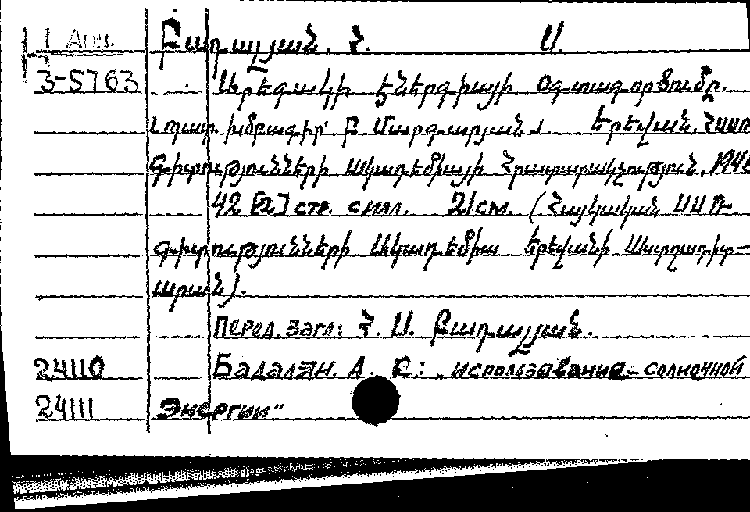 1 Арм. Բադալյան. Հ. Ս.
3-5763 Արեգակի էներգիայի օգտագործումը.
պատ. խմբագիր՝ Բ Մարգարյան. Երևան, Հայո
գիտությունների Ակադեմիայի Հրատարակչություն, 194
42 [2] стр. с илл. 21 см. (Հայկական ՍՍՌ
գիտությունների Ակադեմիա Երևանի Աստղադիտ-
արան).
Перед. загл: Հ. Ս. Բադալյան.
24110 Бадалян. А. С: „использование солнечной
24111 Энергии"